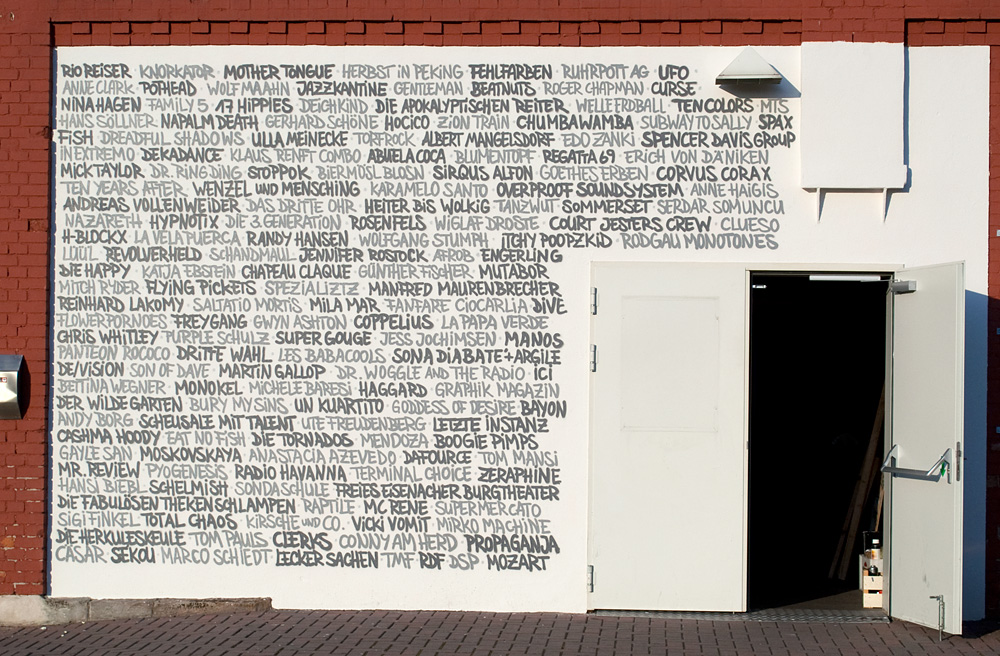 RIO REISER KNORKATOR MOTHER TONGUE HERBST IN PEKING FEHLFARBEN RUHRPOTT AG UFO
ANNE CLARK POTHEAD WOLF MAAHN JAZZKANTINE GENTLEMAN BEATNUTS ROGER CHAPMAN CURSE
NINA HAGEN FAMILY 5 17 HIPPIES DEICHKIND DIE APOKALYPTISCHEN REITER WELLE ERDBALL TEN COLORS MTS
HANS SÖLLNER NAPALM DEATH GERHARD SCHÖNE HOCICO ZION TRAIN CHUMBAWAMBA SUBWAY TO SALLY SPAX
FISH DREADFUL SHADOWS ULLA MEINECKE TORFROCK ALBERT MANGELSDORF EDO ZANKI SPENCER DAVIS GROUP
IN EXTREMO DEKADANCE KLAUS RENFT COMBO ABUELA COCA BLUMENTOPF REGATTA 69 ERICH VON DÄNIKEN
MICK TAYLOR DR. RING DING STOPPOK BIERMÖSL BLOSN SIRQUS ALFON GOETHES ERBEN CORVUS CORAX
TEN YEARS AFTER WENZEL UND MENSCHING KARAMELO SANTO OVERPROOF SOUNDSYSTEM ANNE HAIGIS
ANDREAS VOLLENWEIDER DAS DRITTE OHR HEITER BIS WOLKIG TANZWUT SOMMERSET SERDAR SOMUNCU
NAZARETH HYPNOTIX DIE 3. GENERATION ROSENFELS WIGLAF DROSTE COURT JESTERS CREW CLUESO
H-BLOCKX LA VELA PUERCA RANDY HANSEN WOLFGANG STUMPH ITCHY POOPZKID RODGAU MONOTONES
LÜÜL REVOLVERHELD SCHANDMAUL JENNIFER ROSTOCK AFROB ENGERLING
DIE HAPPY KATJA EBSTEIN CHAPEAU CLAQUE GÜNTHER FISCHER MUTABOR
MITCH RYDER FLYING PICKETS SPEZIALIZTZ MANFRED MAURENBRECHER
REINHARD LAKOMY SALTATIO MORTIS MILA MAR FANFARE CIOCARLIA DIVE
FLOWERPORNOES FREYGANG GWYN ASHTON COPPELIUS LA PAPA VERDE
CHRIS WHITLEY PURPLE SCHULZ SUPER GOUGE JESS JOCHIMSEN MANOS
PANTEON ROCOCO DRITTE WAHL LES BABACOOLS SONA DIABATÉ + ARGILE
DE/VISION SON OF DAVE MARTIN GALLOP DR. WOGGLE AND THE RADIO ICI
BETTINA WEGNER MONOKEL MICHELE BARESI HAGGARD GRAPHIK MAGAZIN
DER WILDE GARTEN BURY MY SINS UN KUARTITO GODDESS OF DESIRE BAYON
ANDY BORG SCHEUSALE MIT TALENT UTE FREUDENBERG LETZTE INSTANZ
CASHMA HOODY EAT NO FISH DIE TORNADOS MENDOZA BOOGIE PIMPS
GAYLE SAN MOSKOVSKAYA ANASTACIA AZEVEDO DAFOURCE TOM MANSI
MR. REVIEW PYOGENESIS RADIO HAVANNA TERMINAL CHOICE ZERAPHINE
HANSI BIEBL SCHELMISH SONDASCHULE FREIES EISENACHER BURGTHEATER
DIE FABULÖSEN THEKENSCHLAMPEN RAPTILE MC RENE SUPERMERCATO
SIGI FINKEL TOTAL CHAOS KIRSCHE UND CO. VICKI VOMIT MIRKO MACHINE
DIE HERKULESKEULE TOM PAULS CLERKS CONNY AM HERD PROPAGANJA
CÄSAR SEKOU MARCO SCHIEDT LECKER SACHEN TMF RDF DSP MOZART